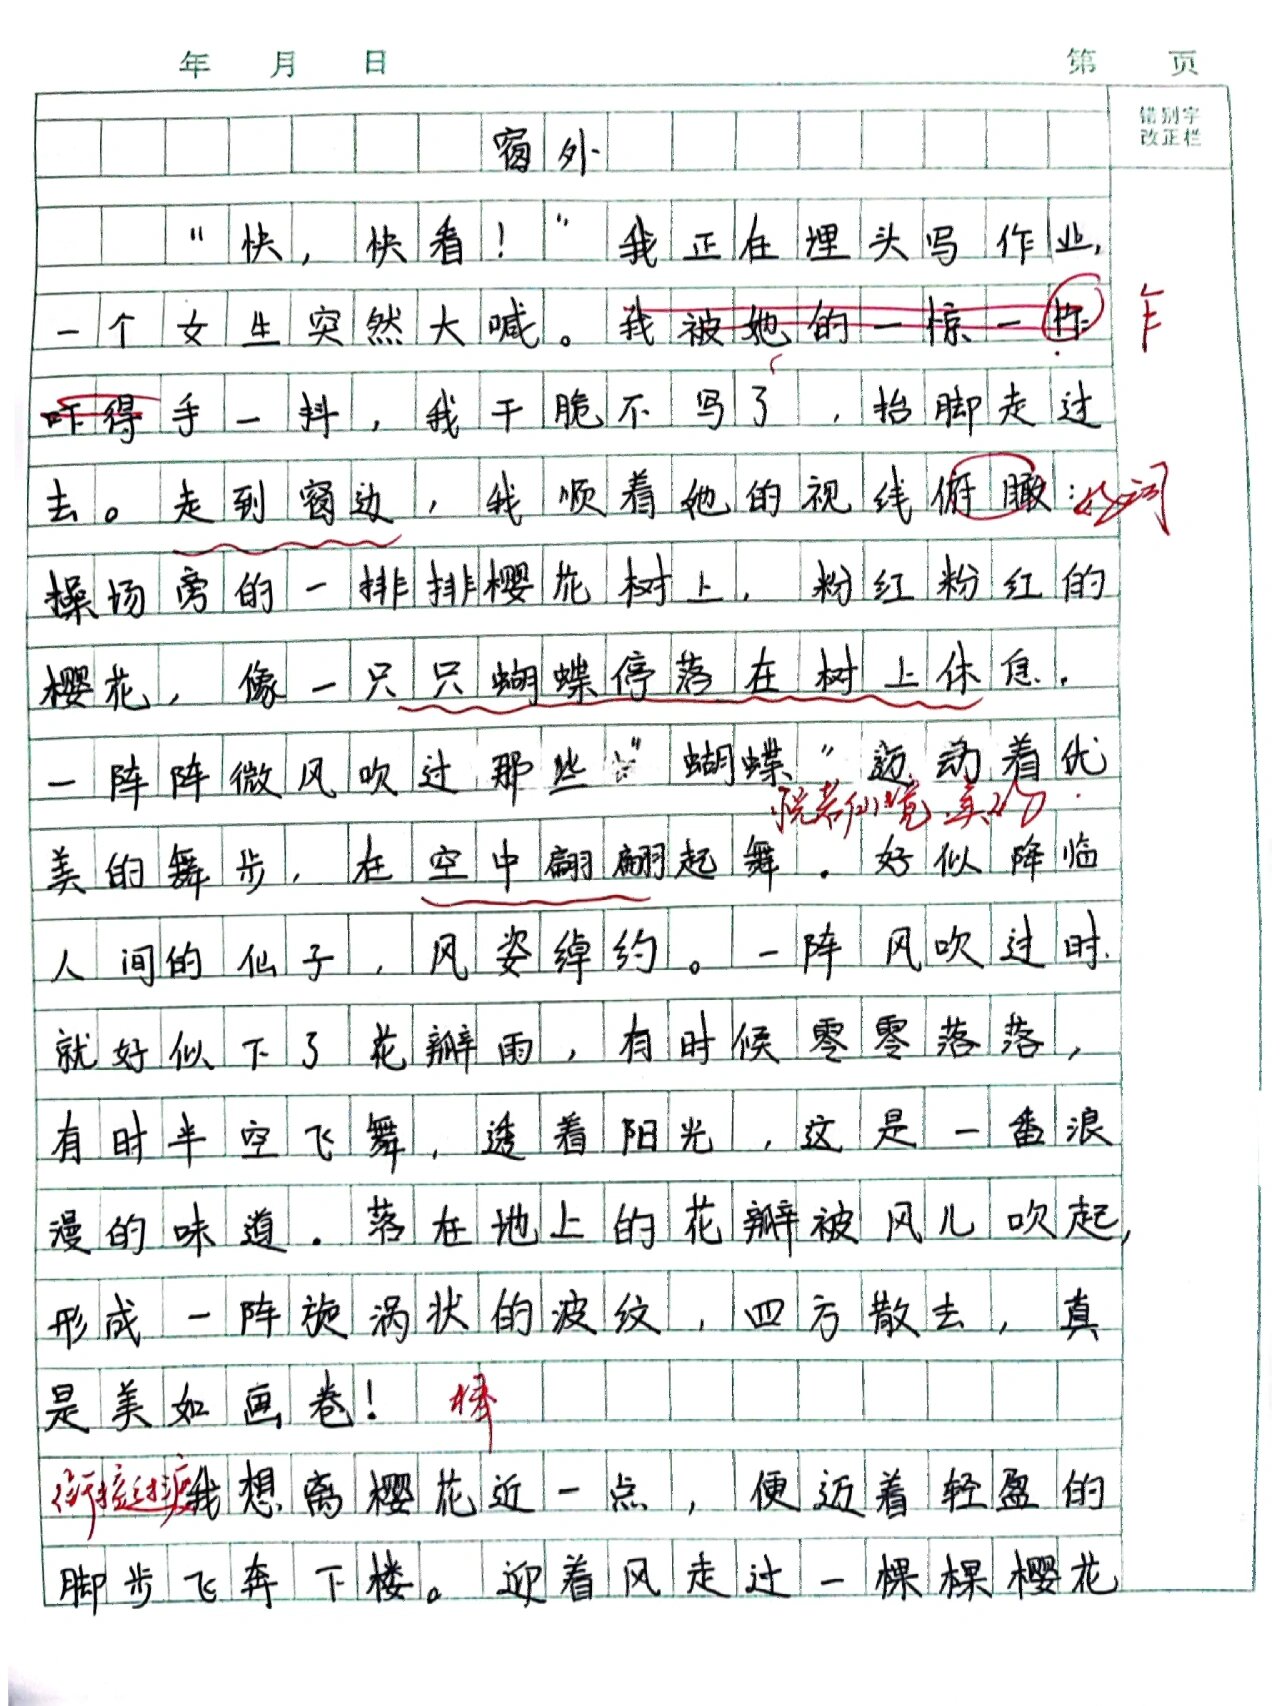 年 月 日 第 页
错别字
改正栏
窗外
“快，快看！”我正在埋头写作业，
一个女生突然大喊。我被她的一惊一作 乍
咋得手一抖，我干脆不写了，抬脚走过
去。走到窗边，我顺着她的视线俯瞰： 好词
操场旁的一排排樱花树上，粉红粉红的
樱花，像一只只蝴蝶停落在树上休息.
一阵阵微风吹过那些“蝴蝶”迈动着优
恍若仙境 美哉
美的舞步，在空中翩翩起舞.好似降临
人间的仙子，风姿绰约。一阵风吹过时.
就好似下了花瓣雨，有时候零零落落，
有时半空飞舞，透着阳光，这是一番浪
漫的味道.落在地上的花瓣被风儿吹起，
形成一阵旋涡状的波纹，四方散去，真
是美如画卷！ 棒
衔接过渡 我想离樱花近一点，便迈着轻盈的
脚步飞奔下楼。迎着风走过一棵棵樱花